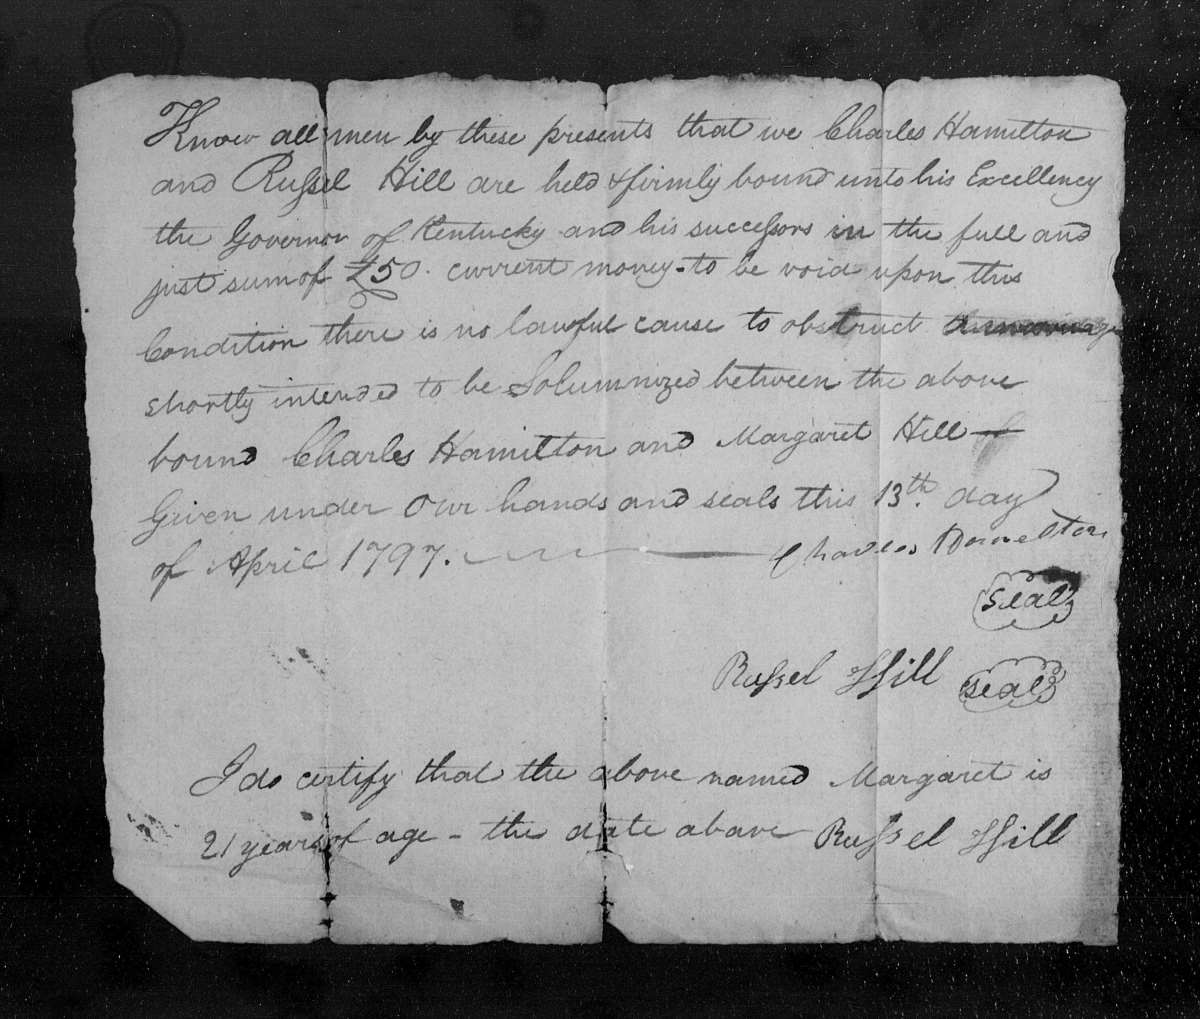 Know all men by these presents that we Charles Hamilton
and Russel Hill are held & firmly bound unto his Excellency
the Governor of Kentucky and his successors in the full and
just sum of £50. current money - to be void upon this
Condition there is no lawful cause to obstruct a marriage
shortly intended to be Solumnized between the above
bound Charles Hamilton and Margaret Hill
Given under Our hands and seals this 13th. day
of April 1797. Charles
Seal
Russel Hill Seal
I do certify that the above named Margaret is
21 years of age - the date above Russel Hill